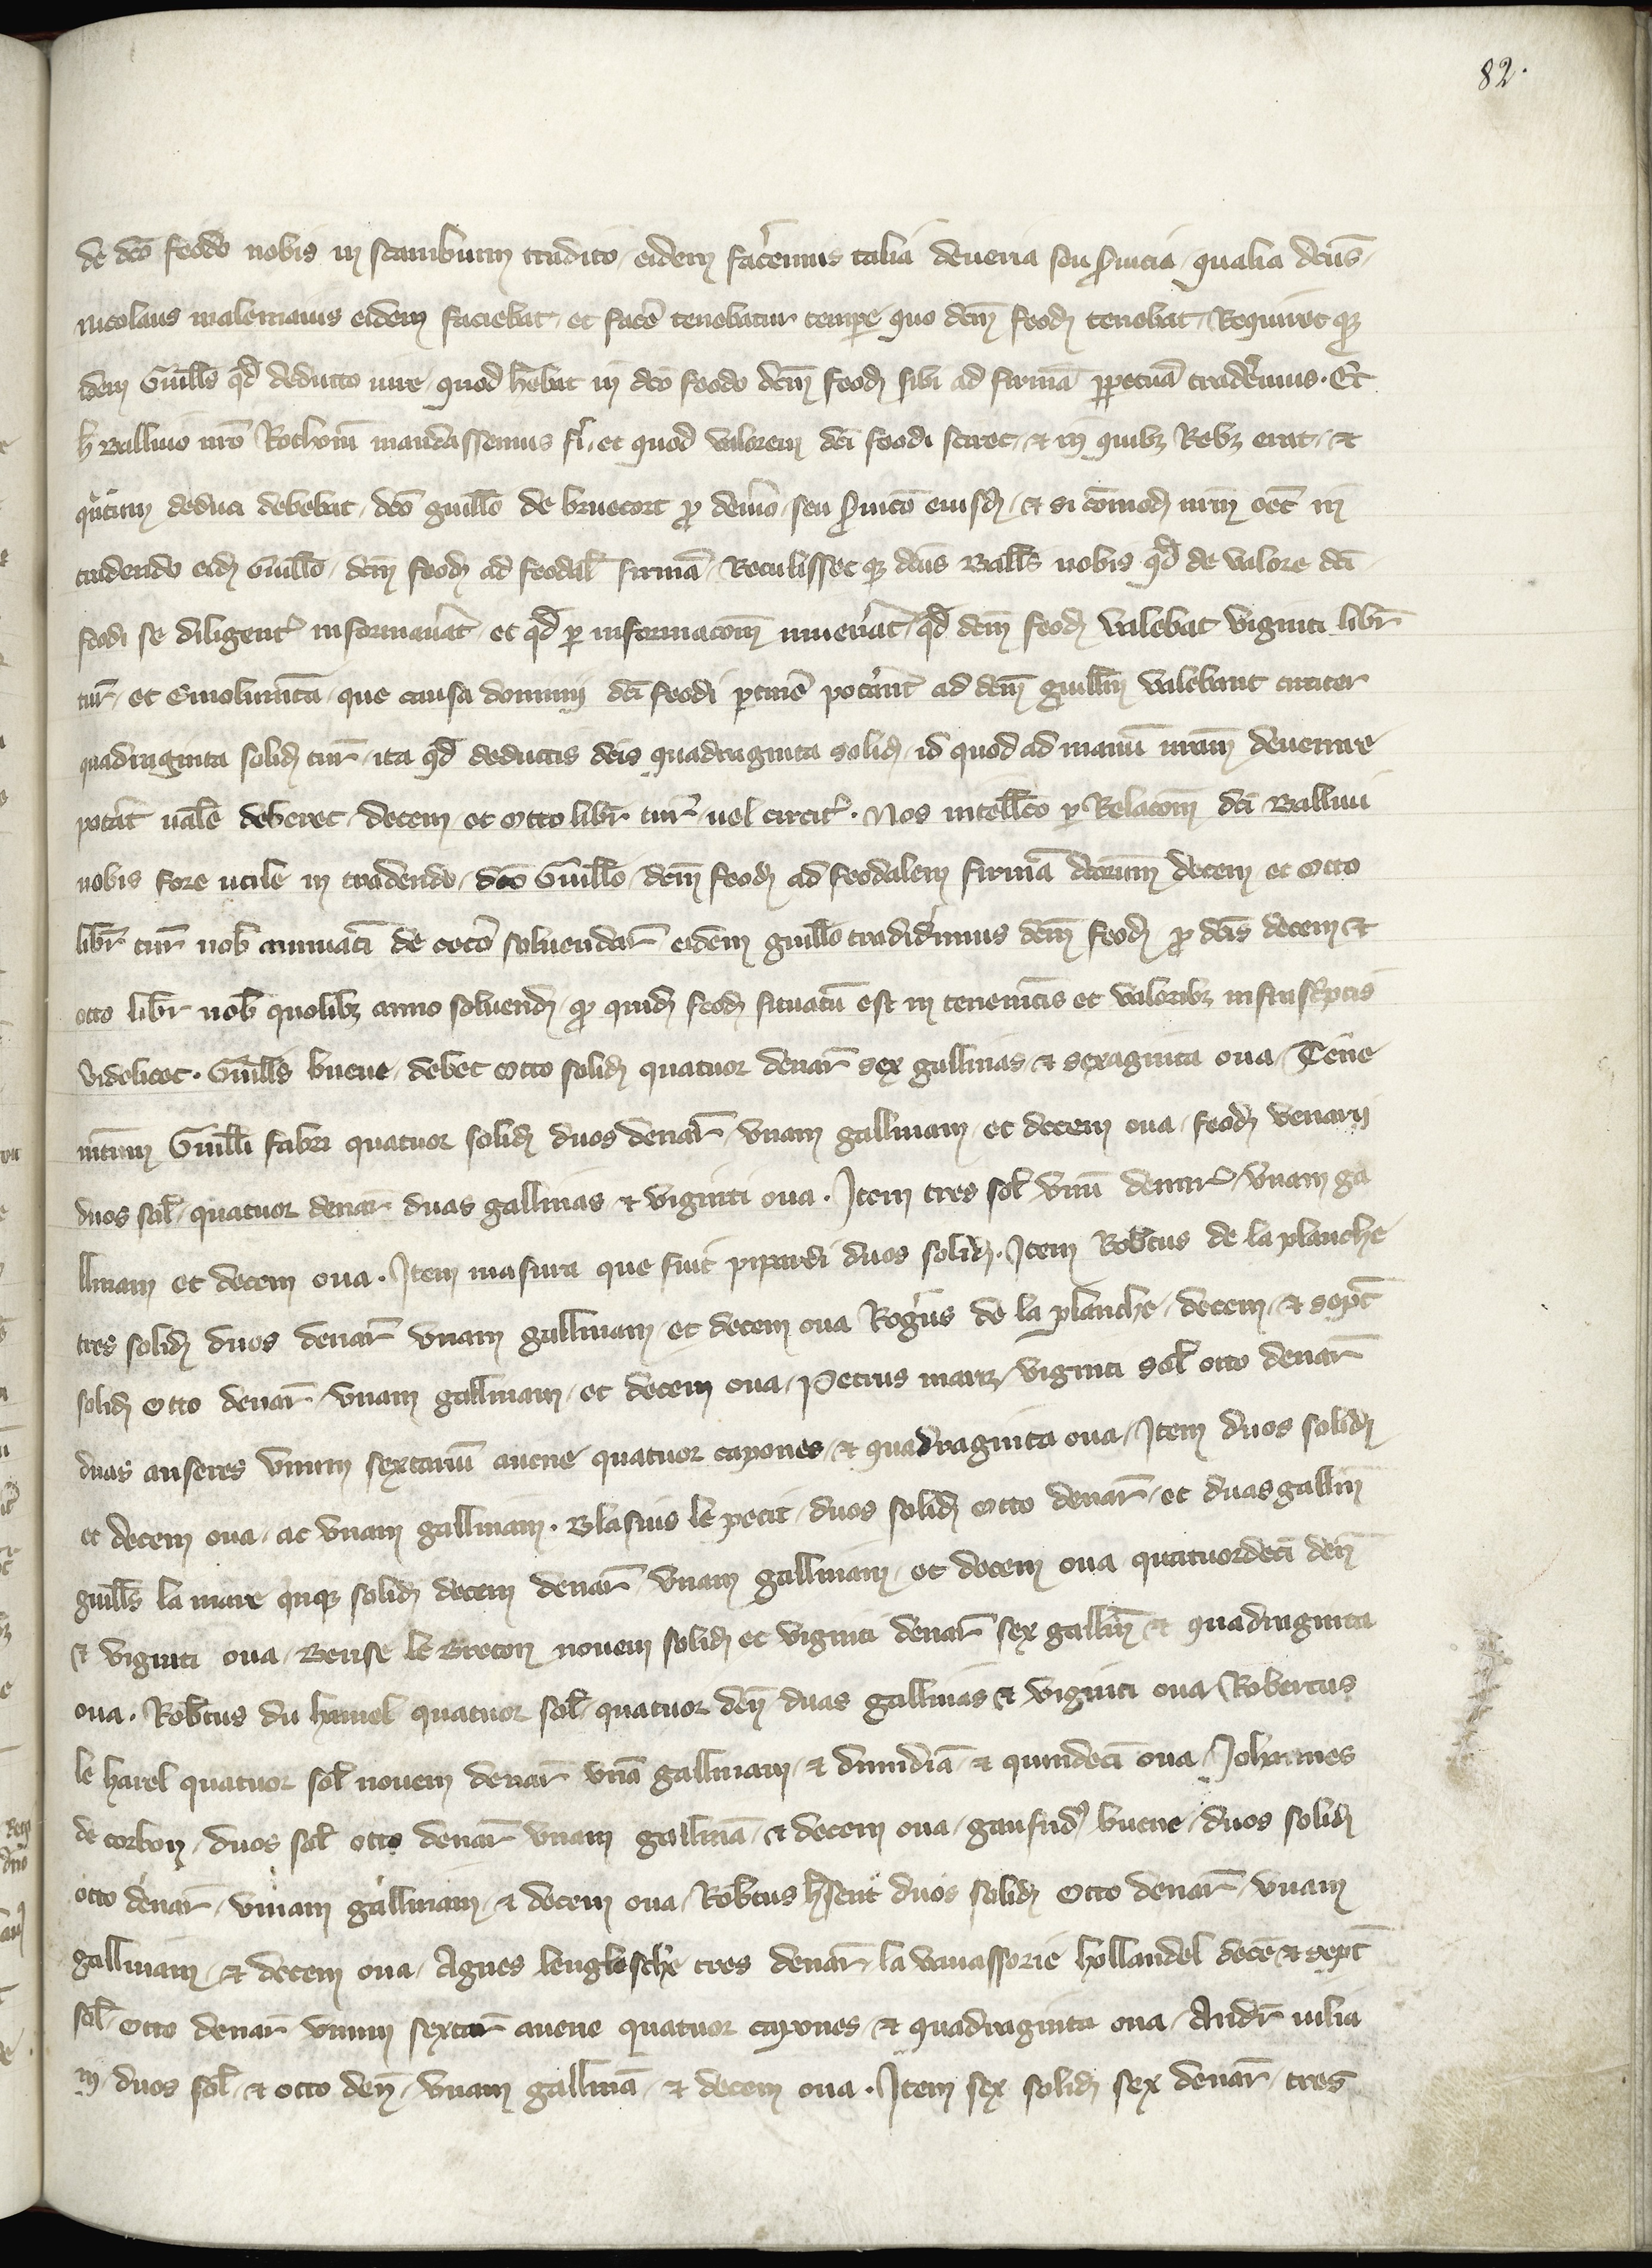 82.
de dco feodo nobis in scambium tradito, eidem facemus talia deueria seu seruicia, qualia dcus,
nicolaus malemains eidem faciebat, et face tenebatur tempe quo dcm feod tenebat, Requiret qz
idem Guills qd deducto iure, quod hebat in dco feodo dcm feod sibi ad firma ppetua traderemus. Et
h Balliuo nro Rothom mandassemus et quod valorem dci feodi sciret, & in quibz Rebz erat, &
qntum deduci debebat, dco guillo de bruecort pro deuio, seu seruico eiusd, & si comod nrm eet in
tradendo eid Guillo, dcm feod ad feodal firma, Retulisset qz dcus Balls nobis qd de valore dci
feodi se diligent informauerat, et qd p informacom inuenerat, qd dcm feod valebat viginti libr
tur, et Emolumta, que causa dominii dci feodi ptine poterant ad dcm guillm valebant circiter
quadraginta solid tur, ita qd deductis dcis quadraginta solid, id quod ad manu nram deuenire
poterat uale deberet, decem et octo libr tur uel circit. Nos intellco p Relacom dci Balliui
nobis fore utile in tradendo, dco Guillo, dcm feod ad feodalem firma dcorum decem et octo
libr tur nob annuati de ceto soluendar eidem guillo tradidimus dcm feod pro dcis decem &
octo libr nob quolibz anno soluend, qd quid feod situatu est in tenemtis et valoribz infrascptis
videlicet. Guills bueue, debet octo solid quatuor denar sex gallinas & sexaginta oua, Tene
mtum Guilli fabri quatuor solid duos denar, vnam gallinam, et decem oua, feod venarii
duos sol, quatuor denar duas gallinas & viginti oua. Item tres sol vnu denar, vnam ga
llinam et decem oua. Item masura que fuit pipardi duos solid. Item Robtus de la planche
tres solid duos denar vnam gallinam, et decem oua Rogus de la planche, decem & sept
solid octo denar, vnam gallinam, et decem oua, Petrus marz, viginti sol octo denar
duas anseres vnum sextariu auene quatuor capones, & quadraginta oua, Item duos solid
et decem oua, ac vnam gallinam. Blasius le petit, duos solid octo denar, et duas gallin
guills la mare qnqz solid decem denar vnam gallinam, et decem oua quatuordeci den
& viginti oua, Beuse le Breton nouem solid et viginti denar sex gallin & quadraginta
oua. Robtus du hamel quatuor sol, quatuor den duas gallinas & viginti oua Robertus
le harel quatuor sol nouem denar vna gallinam, & dimidia & quindeci oua, Johannes
de corbon, duos sol octo denar vnam gallina, & decem oua, gaufrid bueue, duos solid
octo denar, vnam gallinam, & decem oua, Robtus hsent duos solid octo denar, vnam
gallinam, & decem oua, Agnes lenglesche tres denar, la vauassorie hollandel dece & sept
sol, octo denar vnum sextar auene quatuor capones, & quadraginta oua, Andr iulia
m, duos sol, & octo den, vnam gallina, & decem oua. Item sex solid sex denar, tres